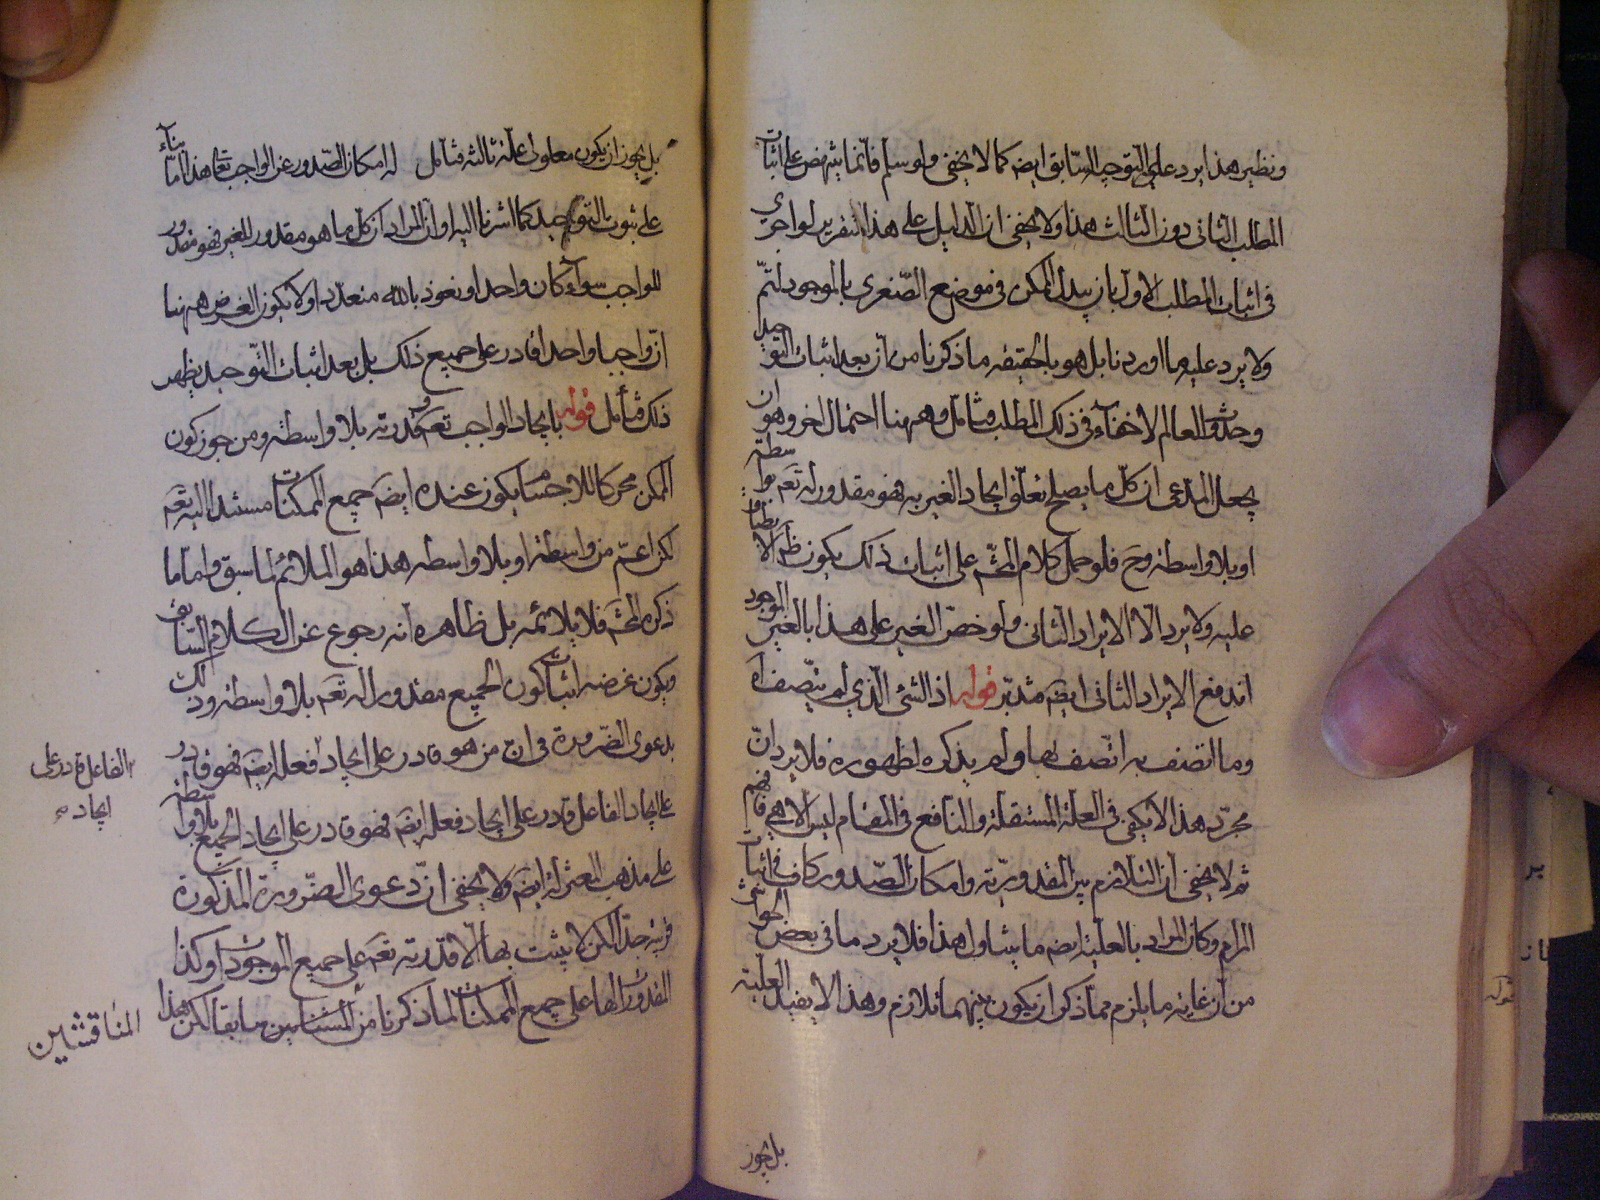 ونظير هذا يرد على التوجيه السابق ايضا كما لا يخفى ولو سلم فانما ينهض على اثبات
المطلب الثانى دون الثالث هذا ولا يخفى ان الدليل على هذا التقرير لو اجرى
فى اثبات المطلب الاول بان يبدل الممكن فى موضع الصغرى بالموجود لتم
ولا يرد عليه ما اوردنا بل هو بالحقيقة ما ذكرنا من ان بعد اثبات التوحيد
وحدوث العالم لا خفاء فى ذلك المطلب فتأمل وههنا احتمال اخر وهو ان
يجعل المدعى ان كل ما يصلح تعلق ايجاد الغير به فهو مقدور له تعه بواسطة
او بلا واسطة وح فلو حمل كلام المحشى على اثبات ذلك يكون الانطباق
عليه ولا يرد الا الايراد الثانى ولو خص الغير على هذا بالغير الموجود
اندفع الايراد الثانى ايضه فتدبر قوله اذ الشئ الذى لم يتصف اه
وما اتصف به اتصف بها ولم يذكره لظهوره فلا يرد ان
مجرد هذا لا يكفى فى العلة المستقلة والنافع فى المقام ليس الا هى فافهم
ثم لا يخفى ان التلازم بين المقدورية وامكان الصدور كاف فى اثبات
المرام وكان المراد بالعلية ايضه ما يتناول هذا فلا يرد ما فى بعض الحواشى
من ان غاية ما يلزم مما ذكر ان يكون بينهما تلازم وهذا لا يفيد العلية
بل يجوز
بل يجوز ان يكون معلولى علة ثالثة فتأمل له امكان الصدور عن الواجب تعا هذا اما بناء
على ثبوت التوحيد كما اشرنا اليه او ان المراد ان كل ما هو مقدور للغير فهو مقدور
للواجب سواء كان واحدا او نعوذ بالله متعددا ولا يكون الغرض ههنا
ان واجبا واحدا قادر على جميع ذلك بل بعد اثبات التوحيد يظهر
ذلك فتأمل قوله بايجاد الواجب تعه وقدرته بلا واسطة ومن جوز كون
الممكن محركا للاجسام يكون عنده ايضه جميع الممكنات مستندا اليه تعه
لكن اعم من واسطة او بلا واسطه هذا هو الملائم لما سبق واما ما
ذكره المحشى فلا يلائمه بل ظاهره انه رجوع عن الكلام السابق
ويكون غرضه اثبات كون الجميع مقدورا له تعه بلا واسطة وذلك
بدعوى الضرورة فى ان من هو قادر على ايجاد فعله ايضه فهو قادر
على ايجاد الفاعل قادر على ايجاد فعله ايضه فهو قادر على ايجاد الجميع بلا واسطة
على مذهب المعتزلة ايضه ولا يخفى ان دعوى الضرورة المذكورة
قريبة جدا لكن لا يثبت بها الا قدرته تعه على جميع الموجودات وكذا
المقدورات لها على جميع الممكنات لما ذكرنا من سابقا لكن هذا
الفاعل قادر على
ايجاده
المناقشتين